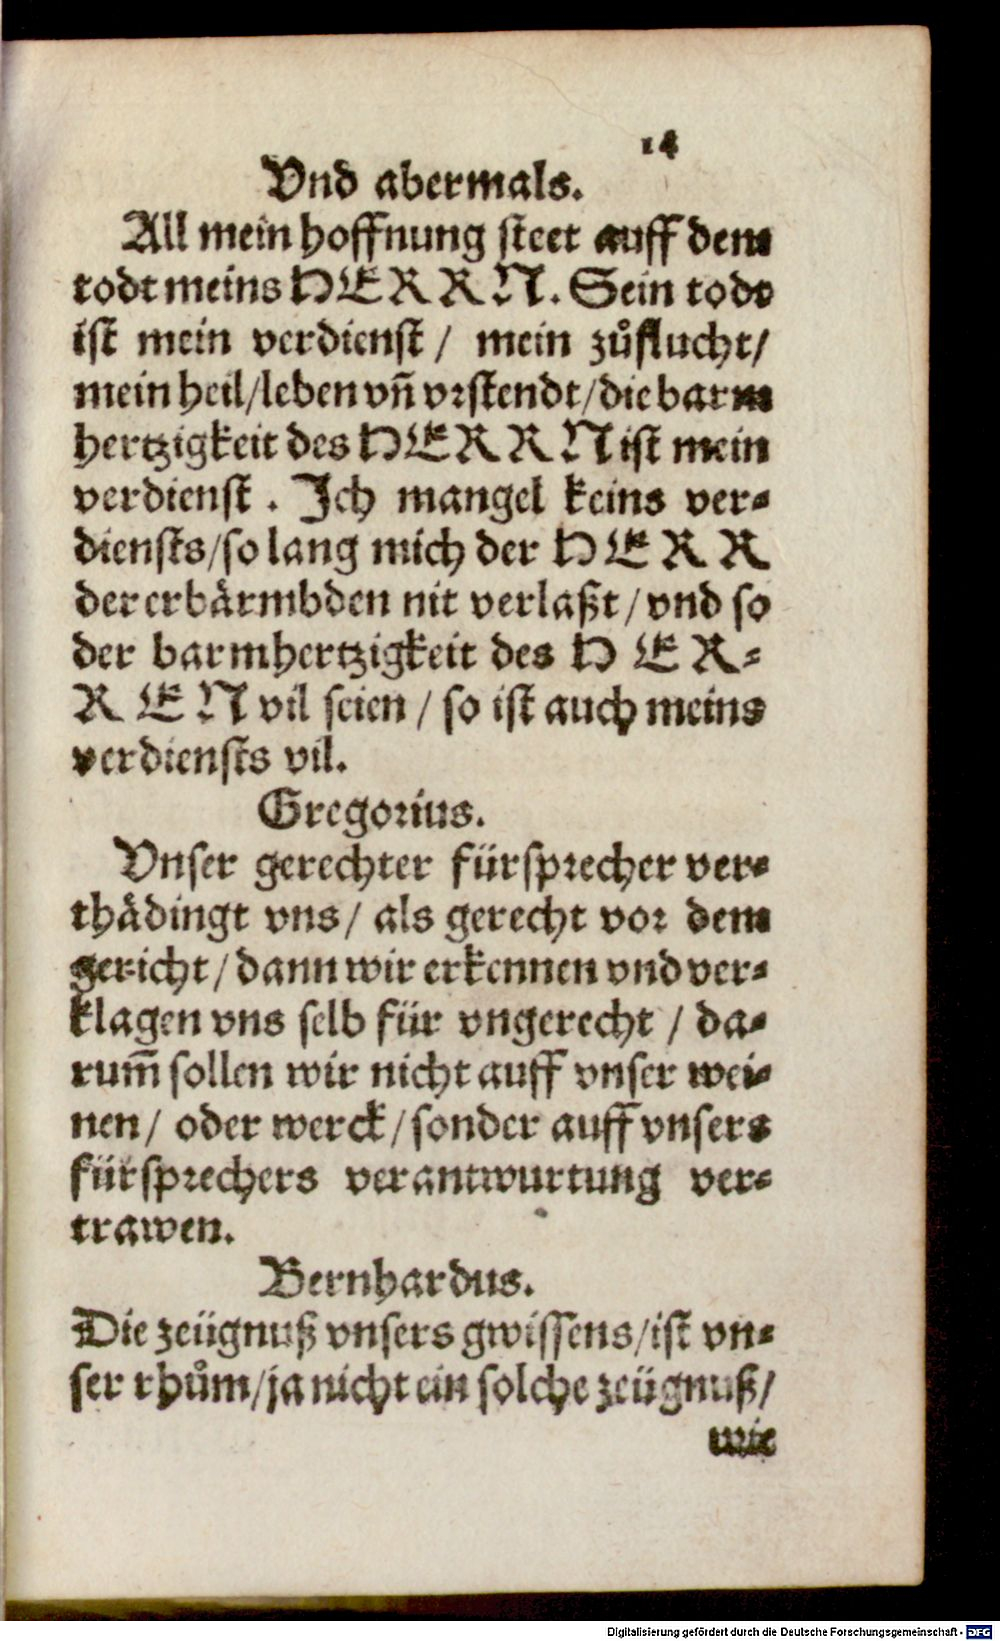 14
Vnd abermals.
All mein hoffnung steet auff dem
todt meins HERRN. Sein todt
ist mein verdienst / mein zůflucht /
mein heil / leben vñ vrstendt / die barm
hertzigkeit des HERRN ist mein
verdienst. Ich mangel keins ver-
diensts / so lang mich der HERR
der erbärmbden nit verlaßt / vnd so
der barmhertzigkeit des HER-
REN vil seien / so ist auch meins
verdiensts vil.
Gregorius.
Vnser gerechter fürsprecher ver-
thädingt vns / als gerecht vor dem
gericht / dann wir erkennen vnd ver-
klagen vns selb für vngerecht / da-
rum̄ sollen wir nicht auff vnser wei-
nen / oder werck / sonder auff vnsers
fürsprechers verantwurtung ver-
trawen.
Bernhardus.
Die zeügnuß vnsers gwissens / ist vn-
ser rhům / ja nicht ein solche zeügnuß /
wie
Digitalisierung gefördert durch die Deutsche Forschungsgemeinschaft - DFG